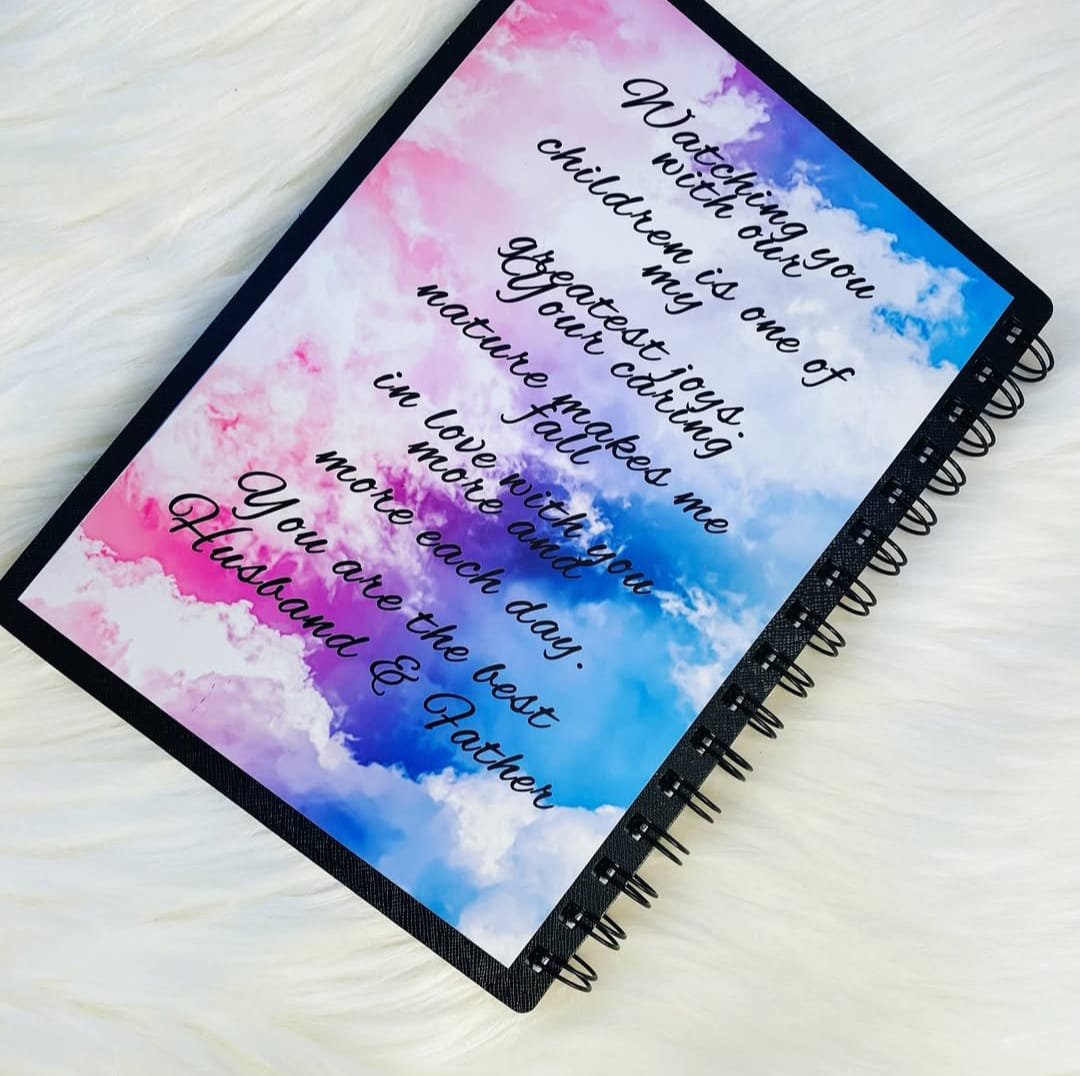 Watching you
with our
children is one of
my
greatest joys.
Your caring
nature makes me
fall
in love with you
more and
more each day.
You are the best
Husband & Father